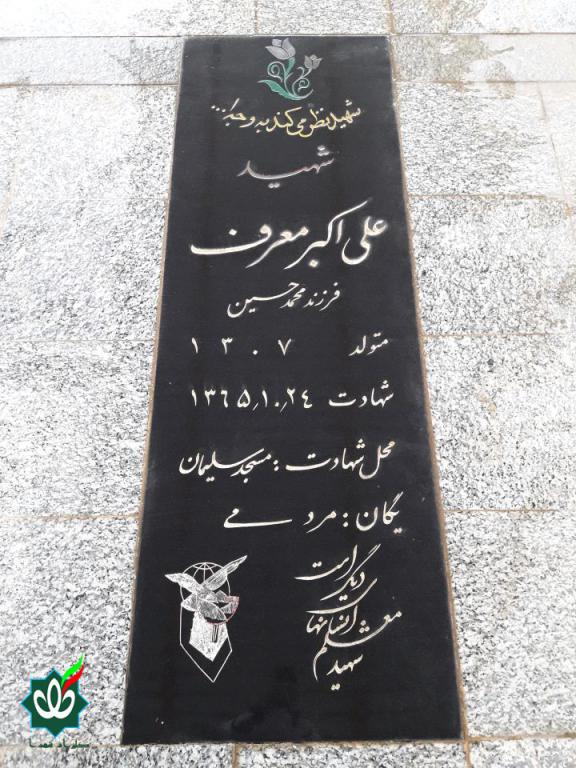 شهید نظر می کند به وجه ا...
شهید
علی اکبر معرف
فرزند محمد حسین
متولد ۱۳۰۷
شهادت ۱۳۶۵,۱۰,۲۴
محل شهادت : مسجد سلیمان
یگان : مردمی
شهید
معلم
انسانهای
دیگر است